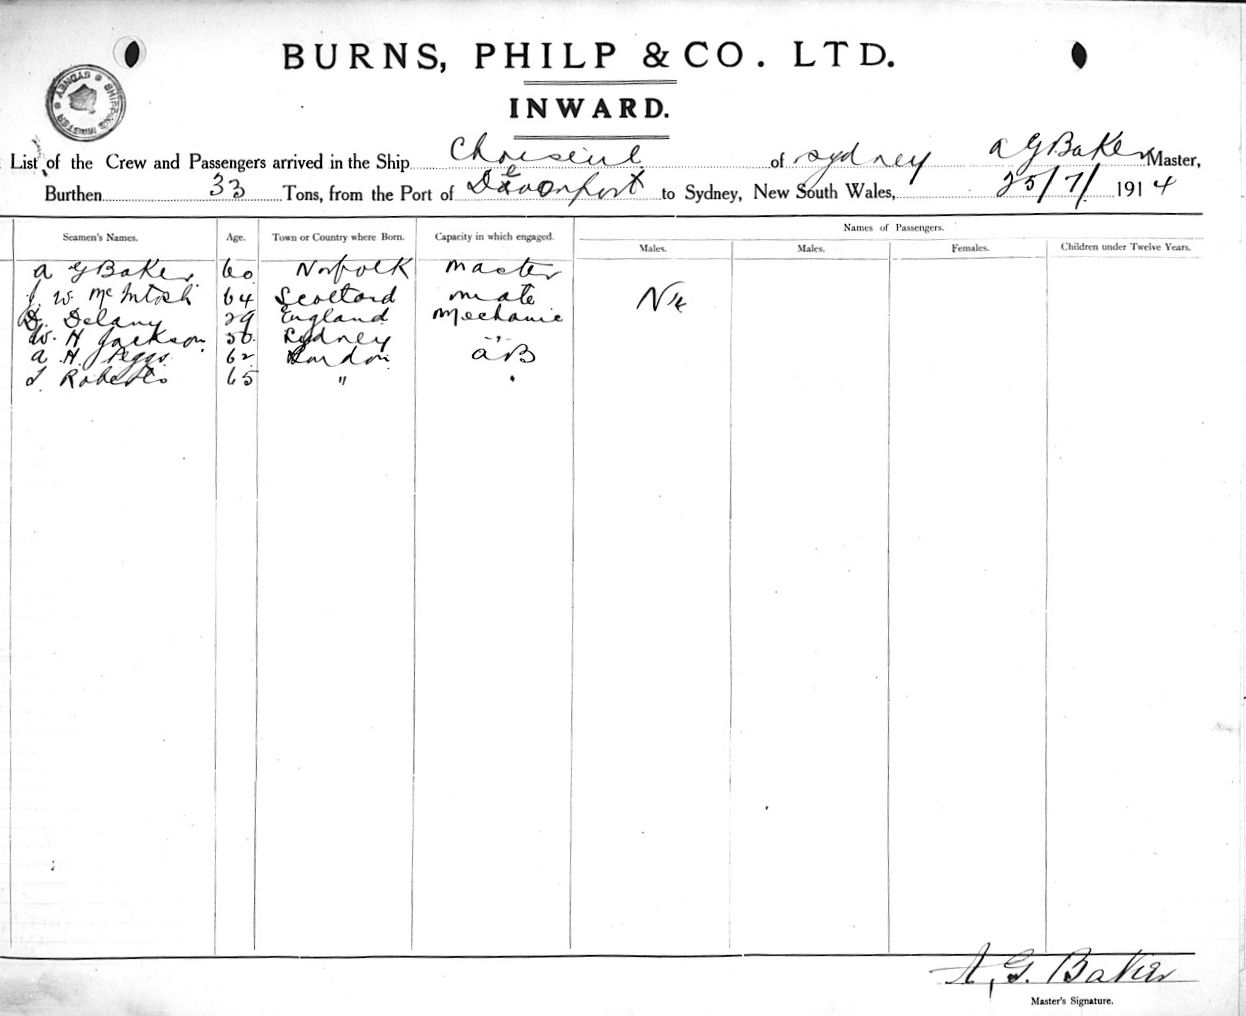 BURNS, PHILP & CO. LTD.
INWARD.
SHIPPING MASTER SYDNEY
List of the Crew and Passengers arrived in the Ship Choiseul of Sydney A G Baker Master,
Burthen 33 Tons, from the Port of Devonport to Sydney, New South Wales, 25/7/ 1914
Names of Passengers.
Seamen's Names. Age. Town or Country where Born. Capacity in which engaged. Males. Males. Females. Children under Twelve Years.
A G Baker 60 Norfolk Master
J. W. McIntosh 64 Scotland Mate Nil
D. Delany 29 England Mechanic
W. H Jackson 50 Sydney "
A H Peggs 62 London AB
T Roberts 65 " "
A, G. Baker
Master's Signature.